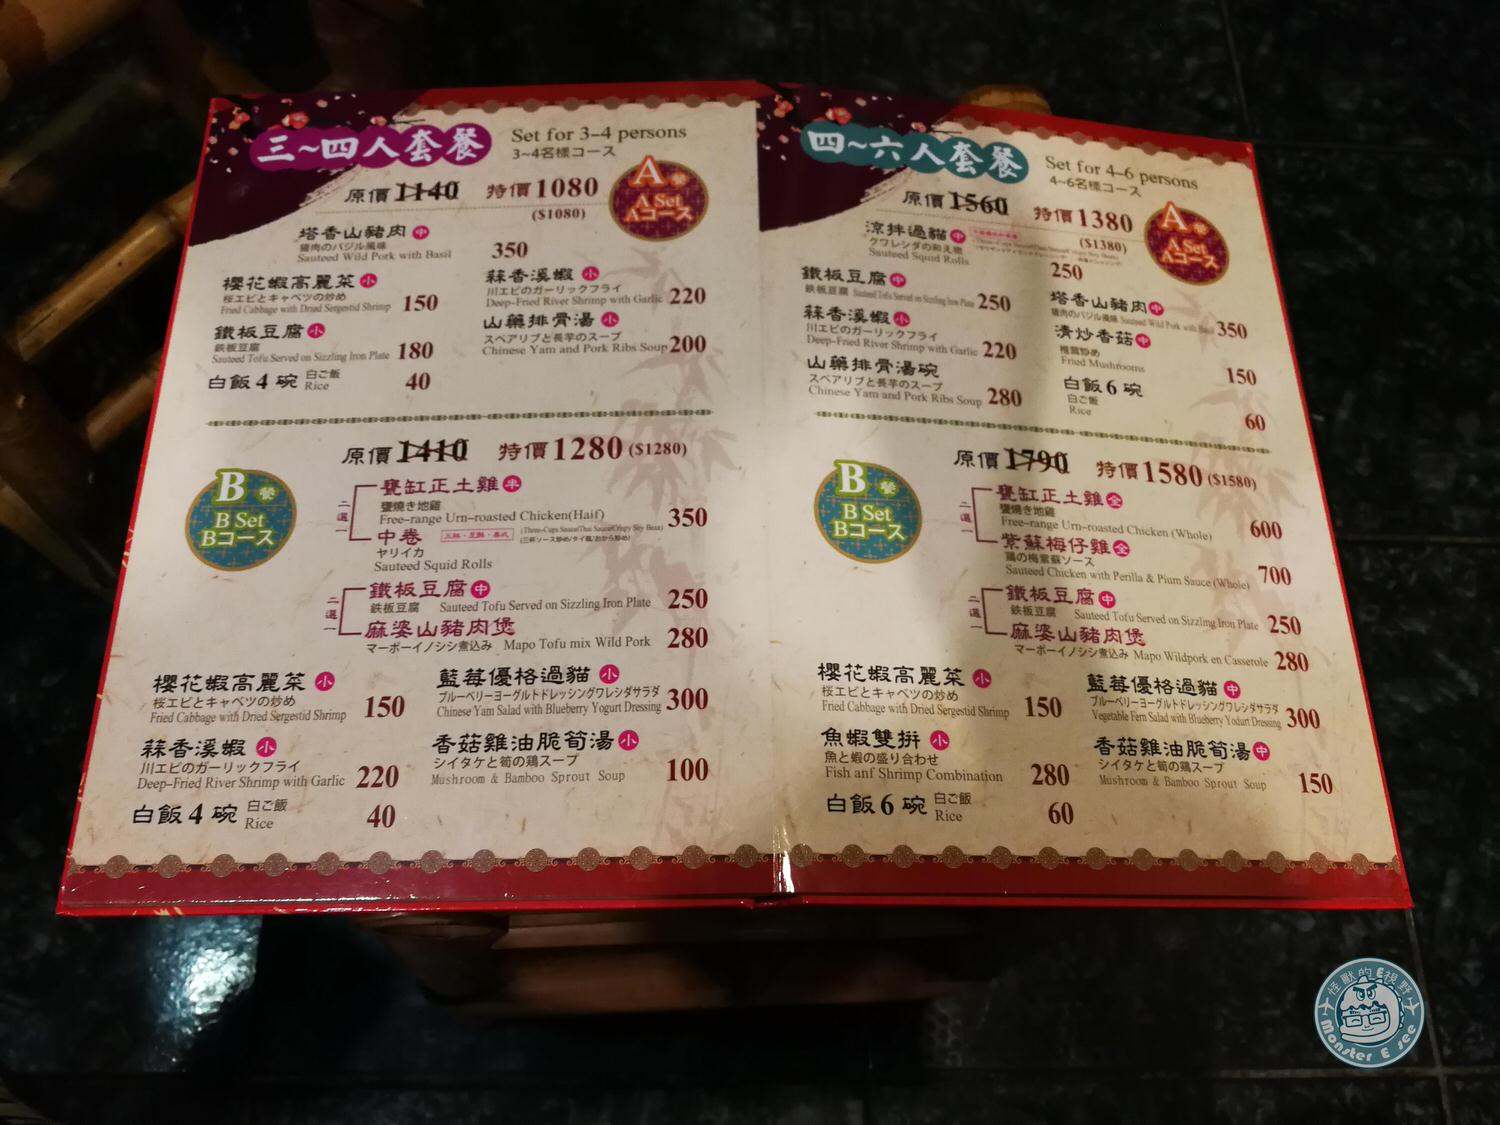 三~四人套餐
Set for 3-4 persons
3~4名様コース
原價 1140 特價 1080
($1080)
A 餐
A Set
Aコース
塔香山豬肉 中
豬肉のバジル風味
Sauteed Wild Pork with Basil 350
櫻花蝦高麗菜 小
桜エビとキャベツの炒め
Fried Cabbage with Dried Sergestid Shrimp 150
蒜香溪蝦 小
川エビのガーリックフライ
Deep-Fried River Shrimp with Garlic 220
鐵板豆腐 小
鉄板豆腐
Sauteed Tofu Served on Sizzling Iron Plate 180
山藥排骨湯 小
スペアリブと長芋のスープ
Chinese Yam and Pork Ribs Soup 200
白飯 4 碗 白ご飯
Rice 40
原價 1410 特價 1280 ($1280)
B 餐
B Set
Bコース
二選一
甕缸正土雞 半
甕焼き地雞
Free-range Urn-roasted Chicken(Haif) 350
中卷 三杯・豆酥・泰式
(Three-Cups Sauce/Thai Sauce/Crispy Soy Bean)
ヤリイカ
Sauteed Squid Rolls
二選一
鐵板豆腐 中
鉄板豆腐 Sauteed Tofu Served on Sizzling Iron Plate 250
麻婆山豬肉煲
マーボーイノシシ煮込み Mapo Tofu mix Wild Pork 280
櫻花蝦高麗菜 小
桜エビとキャベツの炒め
Fried Cabbage with Dried Sergestid Shrimp 150
藍莓優格過貓 小
ブルーベリーヨーグルトドレッシングワレシダサラダ
Chinese Yam Salad with Blueberry Yogurt Dressing 300
蒜香溪蝦 小
川エビのガーリックフライ
Deep-Fried River Shrimp with Garlic 220
香菇雞油脆筍湯 小
シイタケと筍の鶏スープ
Mushroom & Bamboo Sprout Soup 100
白飯 4 碗 白ご飯
Rice 40
四~六人套餐
Set for 4-6 persons
4~6名様コース
原價 1560 特價 1380
($1380)
A 餐
A Set
Aコース
涼拌過貓 中
クワレシダの和え物
Sauteed Squid Rolls 250
鐵板豆腐 中
鉄板豆腐 Sauteed Tofu Served on Sizzling Iron Plate 250
塔香山豬肉 中
豬肉のバジル風味 Sauteed Wild Pork with Basil 350
蒜香溪蝦 小
川エビのガーリックフライ
Deep-Fried River Shrimp with Garlic 220
清炒香菇 中
椎茸炒め
Fried Mushrooms 150
山藥排骨湯碗
スペアリブと長芋のスープ
Chinese Yam and Pork Ribs Soup 280
白飯 6 碗
白ご飯
Rice 60
原價 1790 特價 1580 ($1580)
B 餐
B Set
Bコース
二選一
甕缸正土雞 全
甕焼き地雞
Free-range Urn-roasted Chicken (Whole) 600
紫蘇梅仔雞 全
鶏の梅紫蘇ソース
Sauteed Chicken with Perilla & Pium Sauce (Whole) 700
二選一
鐵板豆腐 中
鉄板豆腐 Sauteed Tofu Served on Sizzling Iron Plate 250
麻婆山豬肉煲
マーボーイノシシ煮込み Mapo Wildpork en Casserole 280
櫻花蝦高麗菜 小
桜エビとキャベツの炒め
Fried Cabbage with Dried Sergestid Shrimp 150
藍莓優格過貓 中
ブルーベリーヨーグルトドレッシングワレシダサラダ
Vegetable Fern Salad with Blueberry Yodurt Dressing 300
魚蝦雙拼 小
魚と蝦の盛り合わせ
Fish anf Shrimp Combination 280
香菇雞油脆筍湯 中
シイタケと筍の鶏スープ
Mushroom & Bamboo Sprout Soup 150
白飯 6 碗 白ご飯
Rice 60
怪獸的E視野
Monster E see